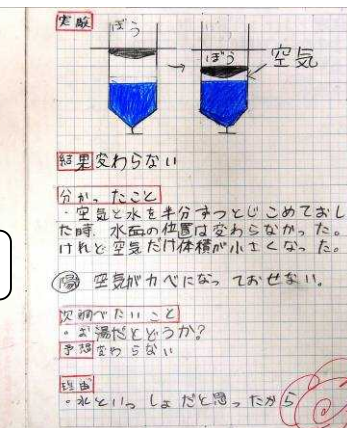 実験
ぼう
ぼう
→
空気
結果 変わらない
分かったこと
・空気と水を半分ずつとじこめておし
た時、水面の位置は変わらなかった。
けれど空気だけ体積が小さくなった。
空気がカベになっておせない。
次調べたいこと
・お湯だとどうか?
予想 変わらない
理由
・水といっしょだと思ったから